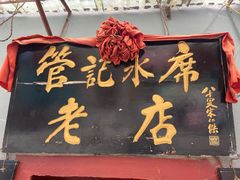 管記水席
老店